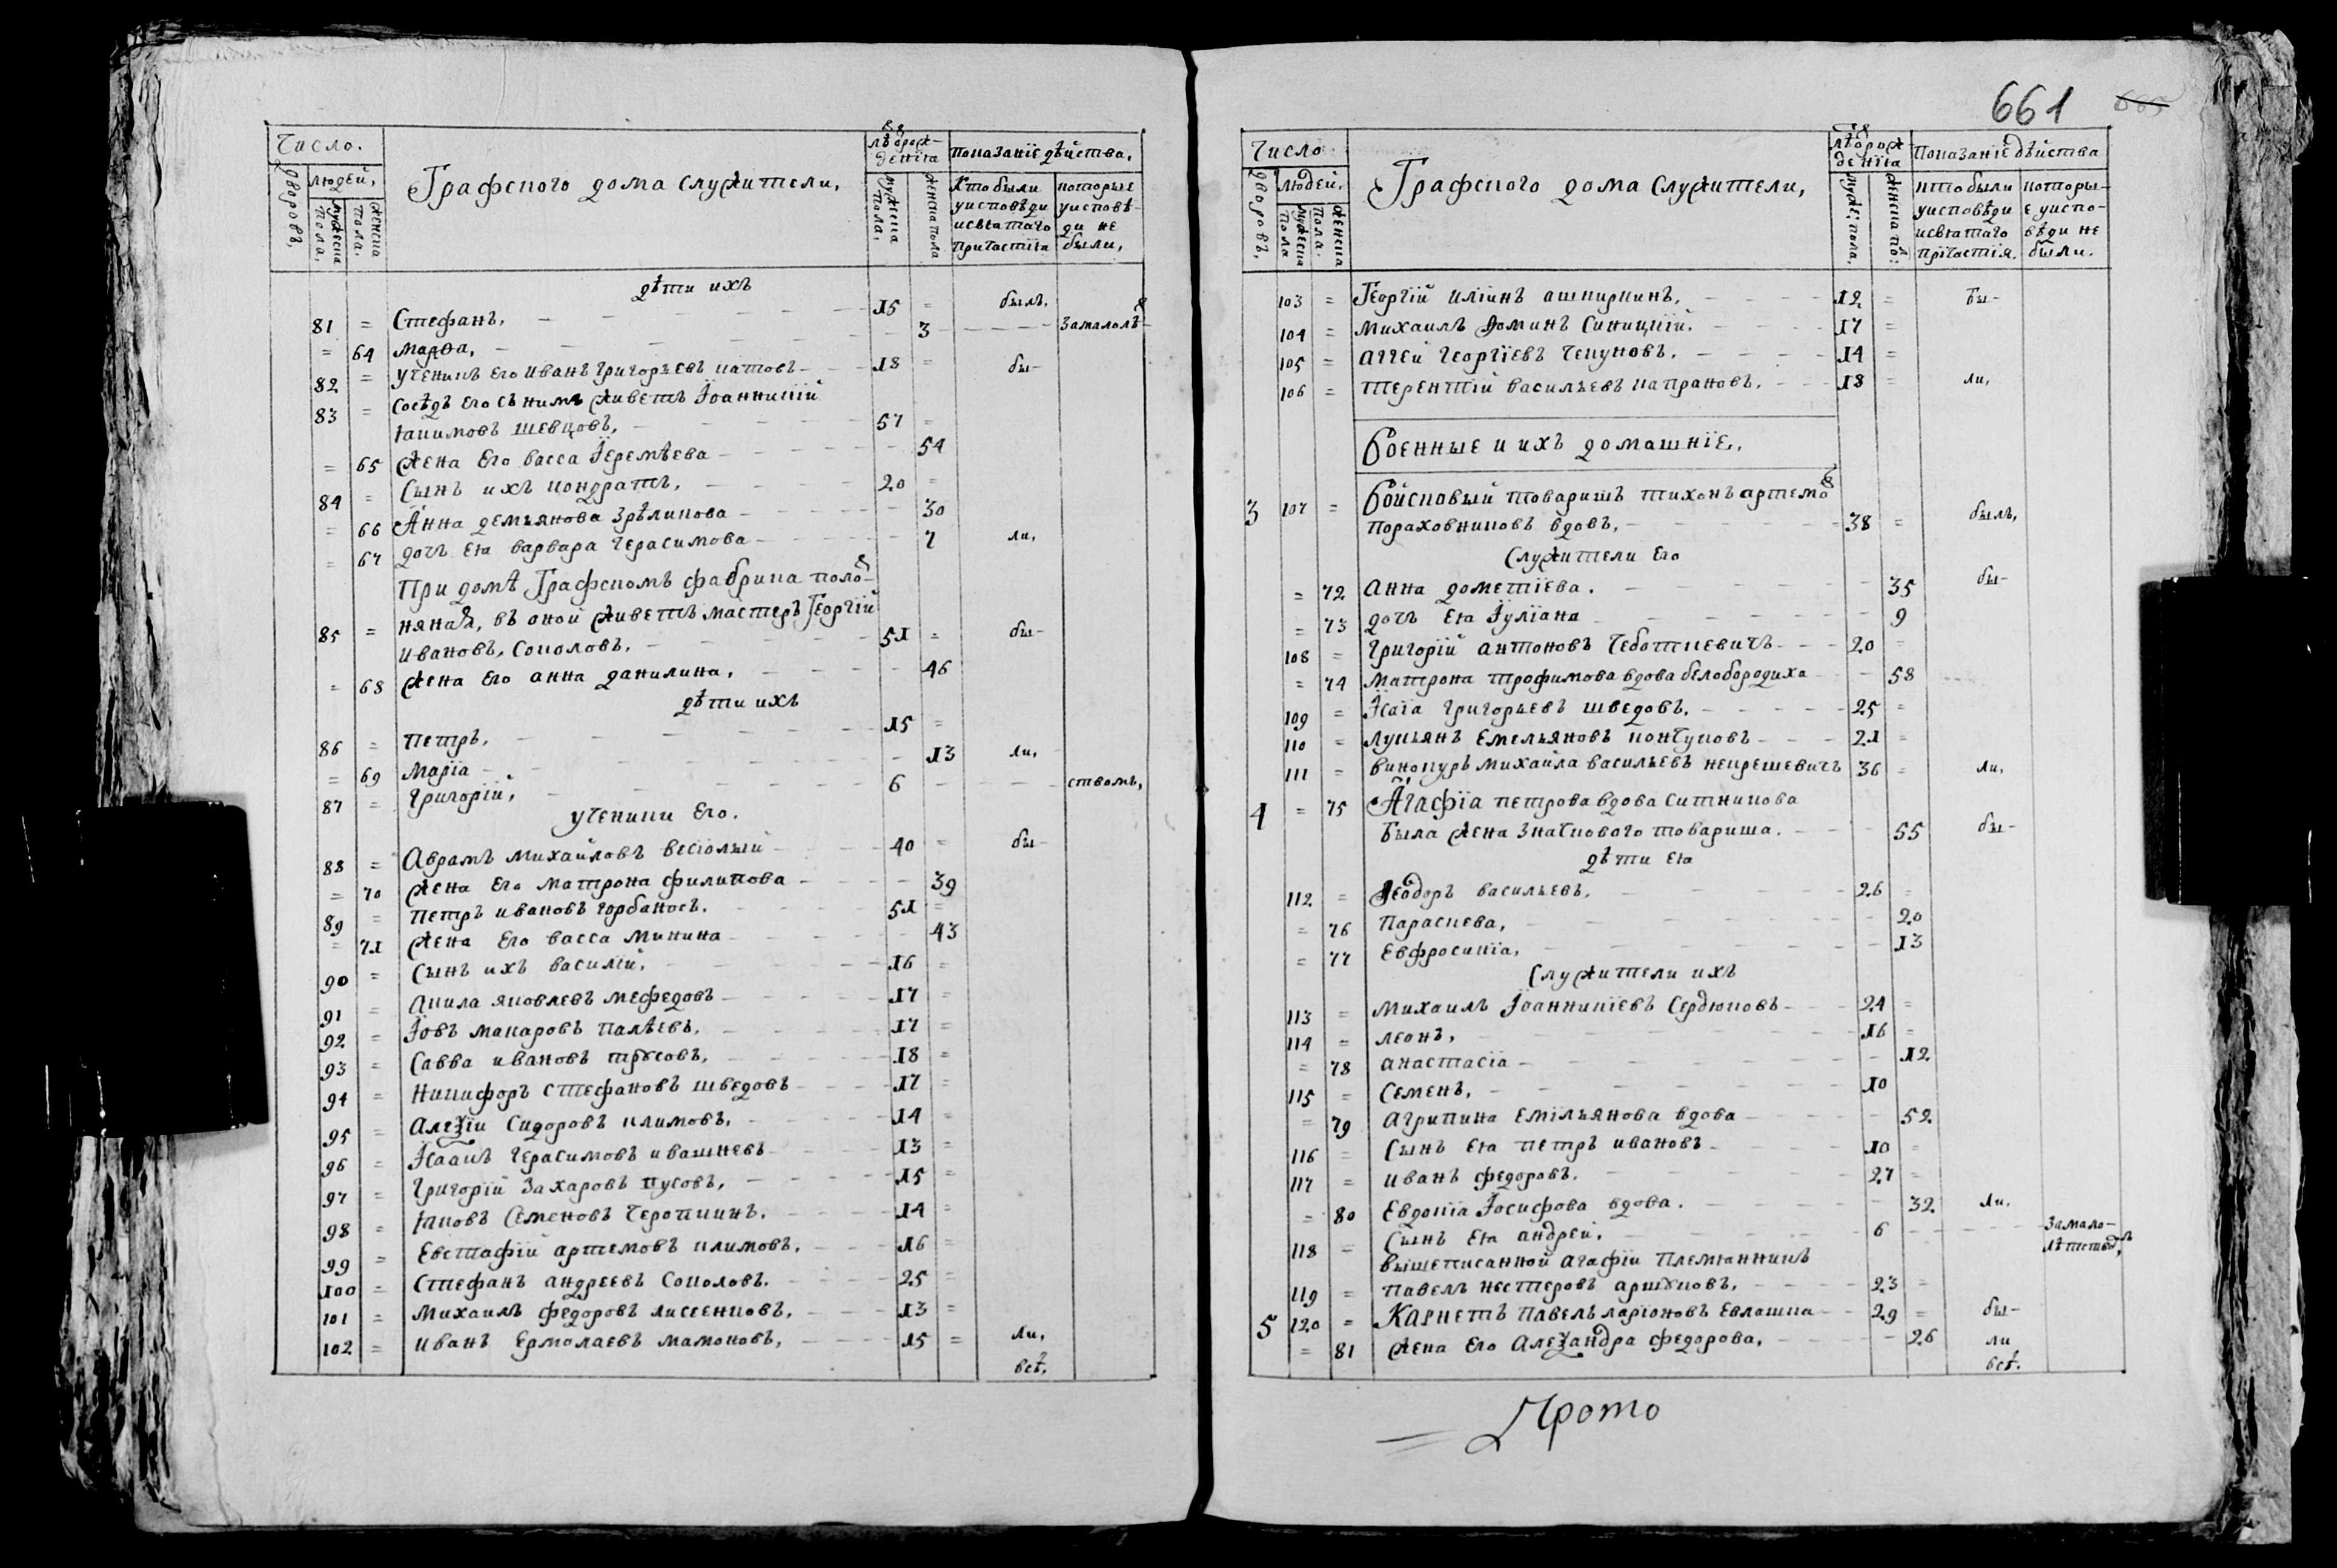 Число.
Дворовъ,
людей,
мужеска пола,
женска пола.
Графского дома служители,
лѣ ѿ рож-
денїѧ
мужеска пола,
женска пола
показанїе дѣйства.
Кто были
у исповѣди
и свѧтаго
причастїѧ
которые
у исповѣ-
ди не
были,
дѣти ихъ
81 = Стефанъ, 15 = былъ,
= 64 марѳа, 3 за малолѣ-
82 = ученикъ его иванъ григорьевъ катовъ 18 = бы-
83 = сосѣдъ его съ нимъ живетъ Їоанникїй
ѧкимовъ шевцовъ, 57 =
= 65 жена его васса Їеремѣева 54
84 = Сынъ ихъ кондратъ, 20 =
= 66 Анна демьянова Зрѣликова 30
= 67 дочь еѧ варвара герасимова 7 ли,
При домѣ Графскомъ фабрика поло-
85 = няная, въ оной живетъ мастеръ Георгїй
ивановъ, Соколовъ, 51 = бы-
= 68 жена его анна данилина, 46
дѣти ихъ
86 = петръ, 15 =
= 69 марїа 13 ли,
87 = григорїй, 6 ствомъ,
ученики его.
88 = Аврамъ михайловъ весїолый 40 = бы-
= 70 жена его матрона филипова 39
89 = петръ ивановъ горбаносъ. 51 =
= 71 жена его васса минина 43
90 = сынъ ихъ василїй, 16 =
91 = акила яковлевъ мефедовъ 17 =
92 = Їовъ макаровъ палѣевъ, 17 =
93 = Савва ивановъ трꙋсовъ, 18 =
94 = никифоръ стефановъ шведовъ 17 =
95 = Алеѯїй Сидоровъ климовъ, 14 =
96 = Їсаакъ герасимовъ ивашневъ 13 =
97 = григорїй Захаровъ кусовъ, 15 =
98 = ѧковъ Семеновъ черопкинъ. 14 =
99 = Евстафїй артемовъ климовъ, 16 =
100 = Стефанъ андреевъ Соколовъ. 25 =
101 = михаилъ федоровъ лисенковъ, 13 =
102 = иванъ ермолаевъ мамоновъ, 15 = ли,
всѣ,
661
Число
Дворовъ,
людей,
мужеска пола
женска пола.
Графского дома служители,
лѣ ѿ рож
денїѧ
муже: пола,
женска по:
показанїе дѣйства
кто были
у исповѣди
и свѧтаго
прїчастїя.
которы-
е у испо-
вѣди не
были.
103 = Георгїй илїинъ ашпиркинъ, 12 = бы-
104 = михаилъ Фоминъ Синицкїй. 17 =
105 = аггей георгїевъ чепуновъ. 14 =
106 = терентїй васильевъ капрановъ. 18 = ли,
Военные и ихъ домашнїе,
3 107 = Войсковый товаришъ тихонъ артемо
пораховниковъ вдовъ, 38 = былъ,
Служители его
= 72 анна дометїева. 35 бы-
= 73 дочь еѧ Їулїана 9
108 = григорїй антоновъ чеботкевичъ 20 =
= 74 матрона трофимова вдова белобородиха 58
109 = Їсаїа григорьевъ шведовъ. 25 =
110 = лукьянъ емельяновъ кончуковъ 21 =
111 = винокуръ михайла васильевъ некрешевичъ 36 = ли,
4 = 75 Агафїа петрова вдова ситникова
была жена значкового товариша. 55 бы-
дѣти еѧ
112 = Ѳеодоръ васильевъ. 26 =
= 76 параскева, 20
= 77 Евфросинїа, 13
Служители ихъ
113 = михаилъ Їоанникїевъ Сердюковъ 24 =
114 = леонъ, 16 =
= 78 анастасїа 12
115 = семенъ, 10
= 79 агрипина емільянова вдова 52
116 = сынъ еѧ петръ ивановъ 10
117 = иванъ федоровъ. 27 =
= 80 Евдокїа Їосифова вдова. 32 ли,
118 = Сынъ еѧ андрей. 6 за мало-
лѣтством,
вышеписанной агафїи племѧнникъ
119 = павелъ нестеровъ аршꙋковъ, 23 =
5 120 = Карнетъ павелъ ларїоновъ Евлашка 29 = бы-
= 81 жена его Алеѯандра федорова, 26 ли
всѣ.
Прото